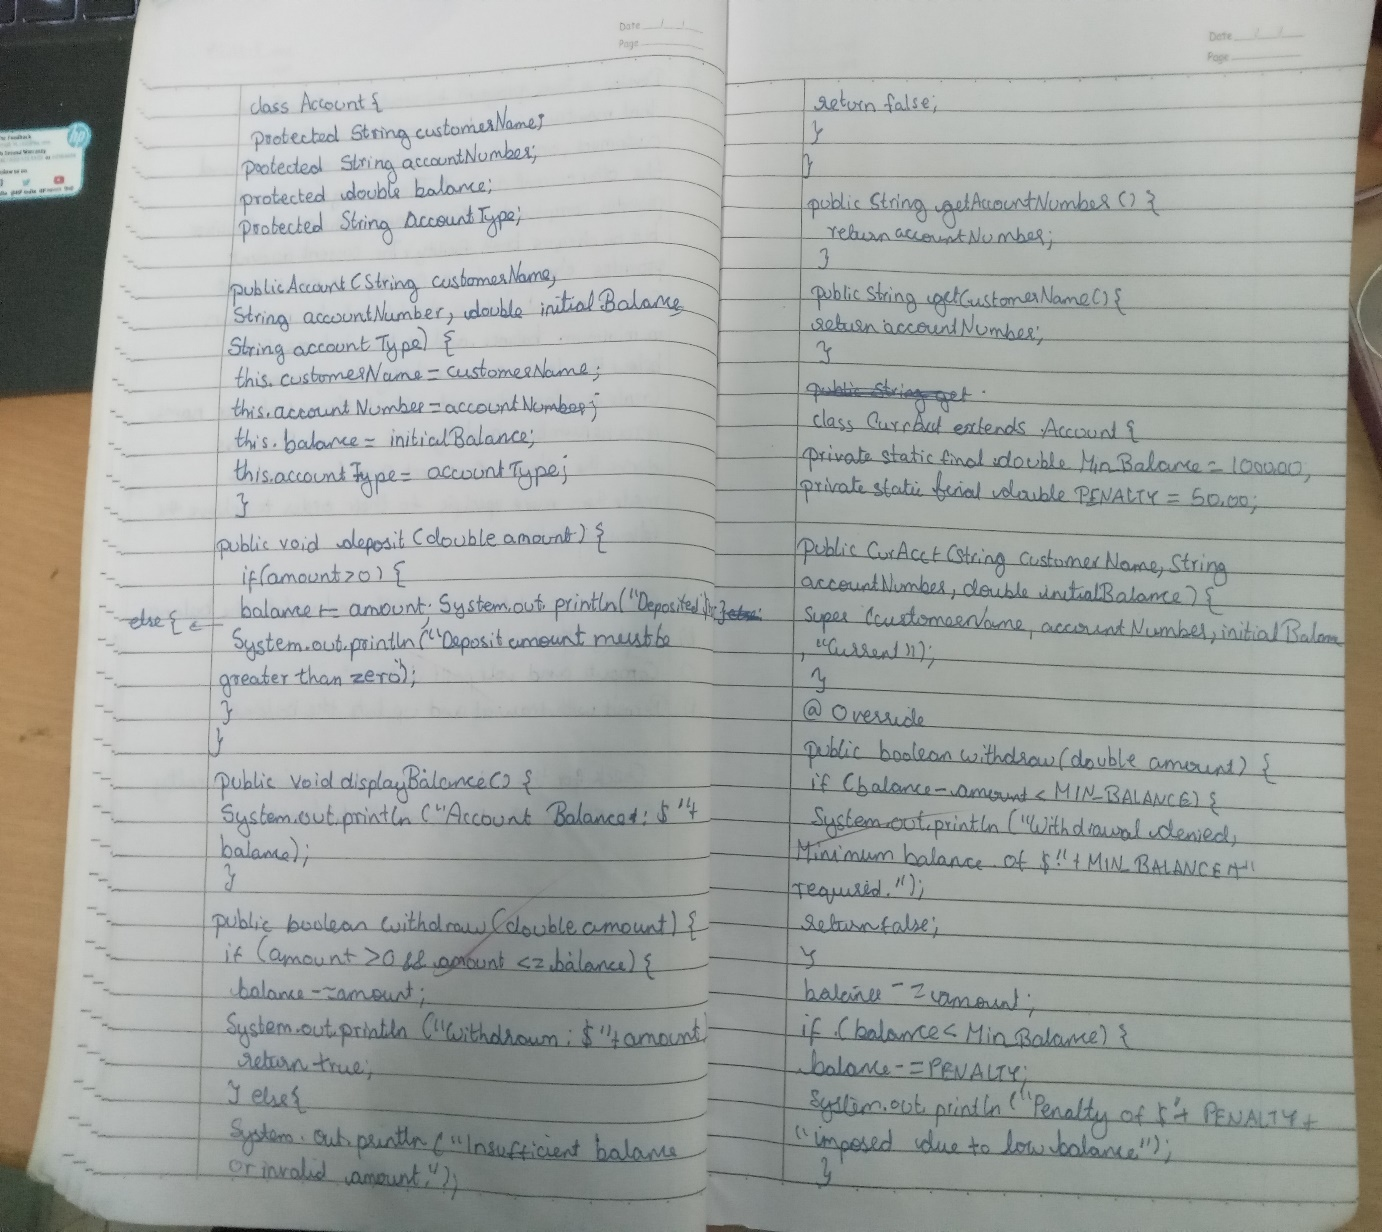 Date
Page
class Account {
protected String customerName;
protected String accountNumber;
protected double balance;
protected String AccountType;
public Account (String customerName,
String accountNumber, double initial Balance
String account Type) {
this. customerName = customerName;
this.account Number = accountNumber;
this. balance = initialBalance;
this.account Type = account Type;
}
public void deposit (double amount) {
if (amount > 0) {
balance += amount; System.out. println("Deposited"); } else:
else {
System.out.println ("Deposit amount must be
greater than zero");
}
}
public void displayBalance() {
System.out.println ("Account Balance: $ "+
balance);
}
public boolean withdraw (double amount) {
if (amount > 0 && amount <= balance) {
balance -= amount;
System.out.println ("Withdrawn : $ "+ amount)
return true;
} else {
System. out. println ("Insufficient balance
or invalid amount.");
Date
Page
return false;
}
}
public String getAccountNumber () {
return accountNumber;
}
public String getCustomerName() {
return accountNumber;
}
public String get
class CurrAcct extends Account {
private static final double Min_Balance = 1000.00;
private static final double PENALTY = 50.00;
public CurAcct (String customerName, String
accountNumber, double initialBalance) {
super (customerName, account Number, initial Balance
, "Current ");
}
@ Override
public boolean withdraw (double amount) {
if (balance - amount < MIN_BALANCE) {
System.out.println ("Withdrawal denied,
Minimum balance of $" + MIN_BALANCE + "
required.");
return false;
}
balance -= amount;
if (balance < Min_Balance) {
balance -= PENALTY;
System.out. println ("Penalty of $"+ PENALTY +
"imposed due to low balance");
}